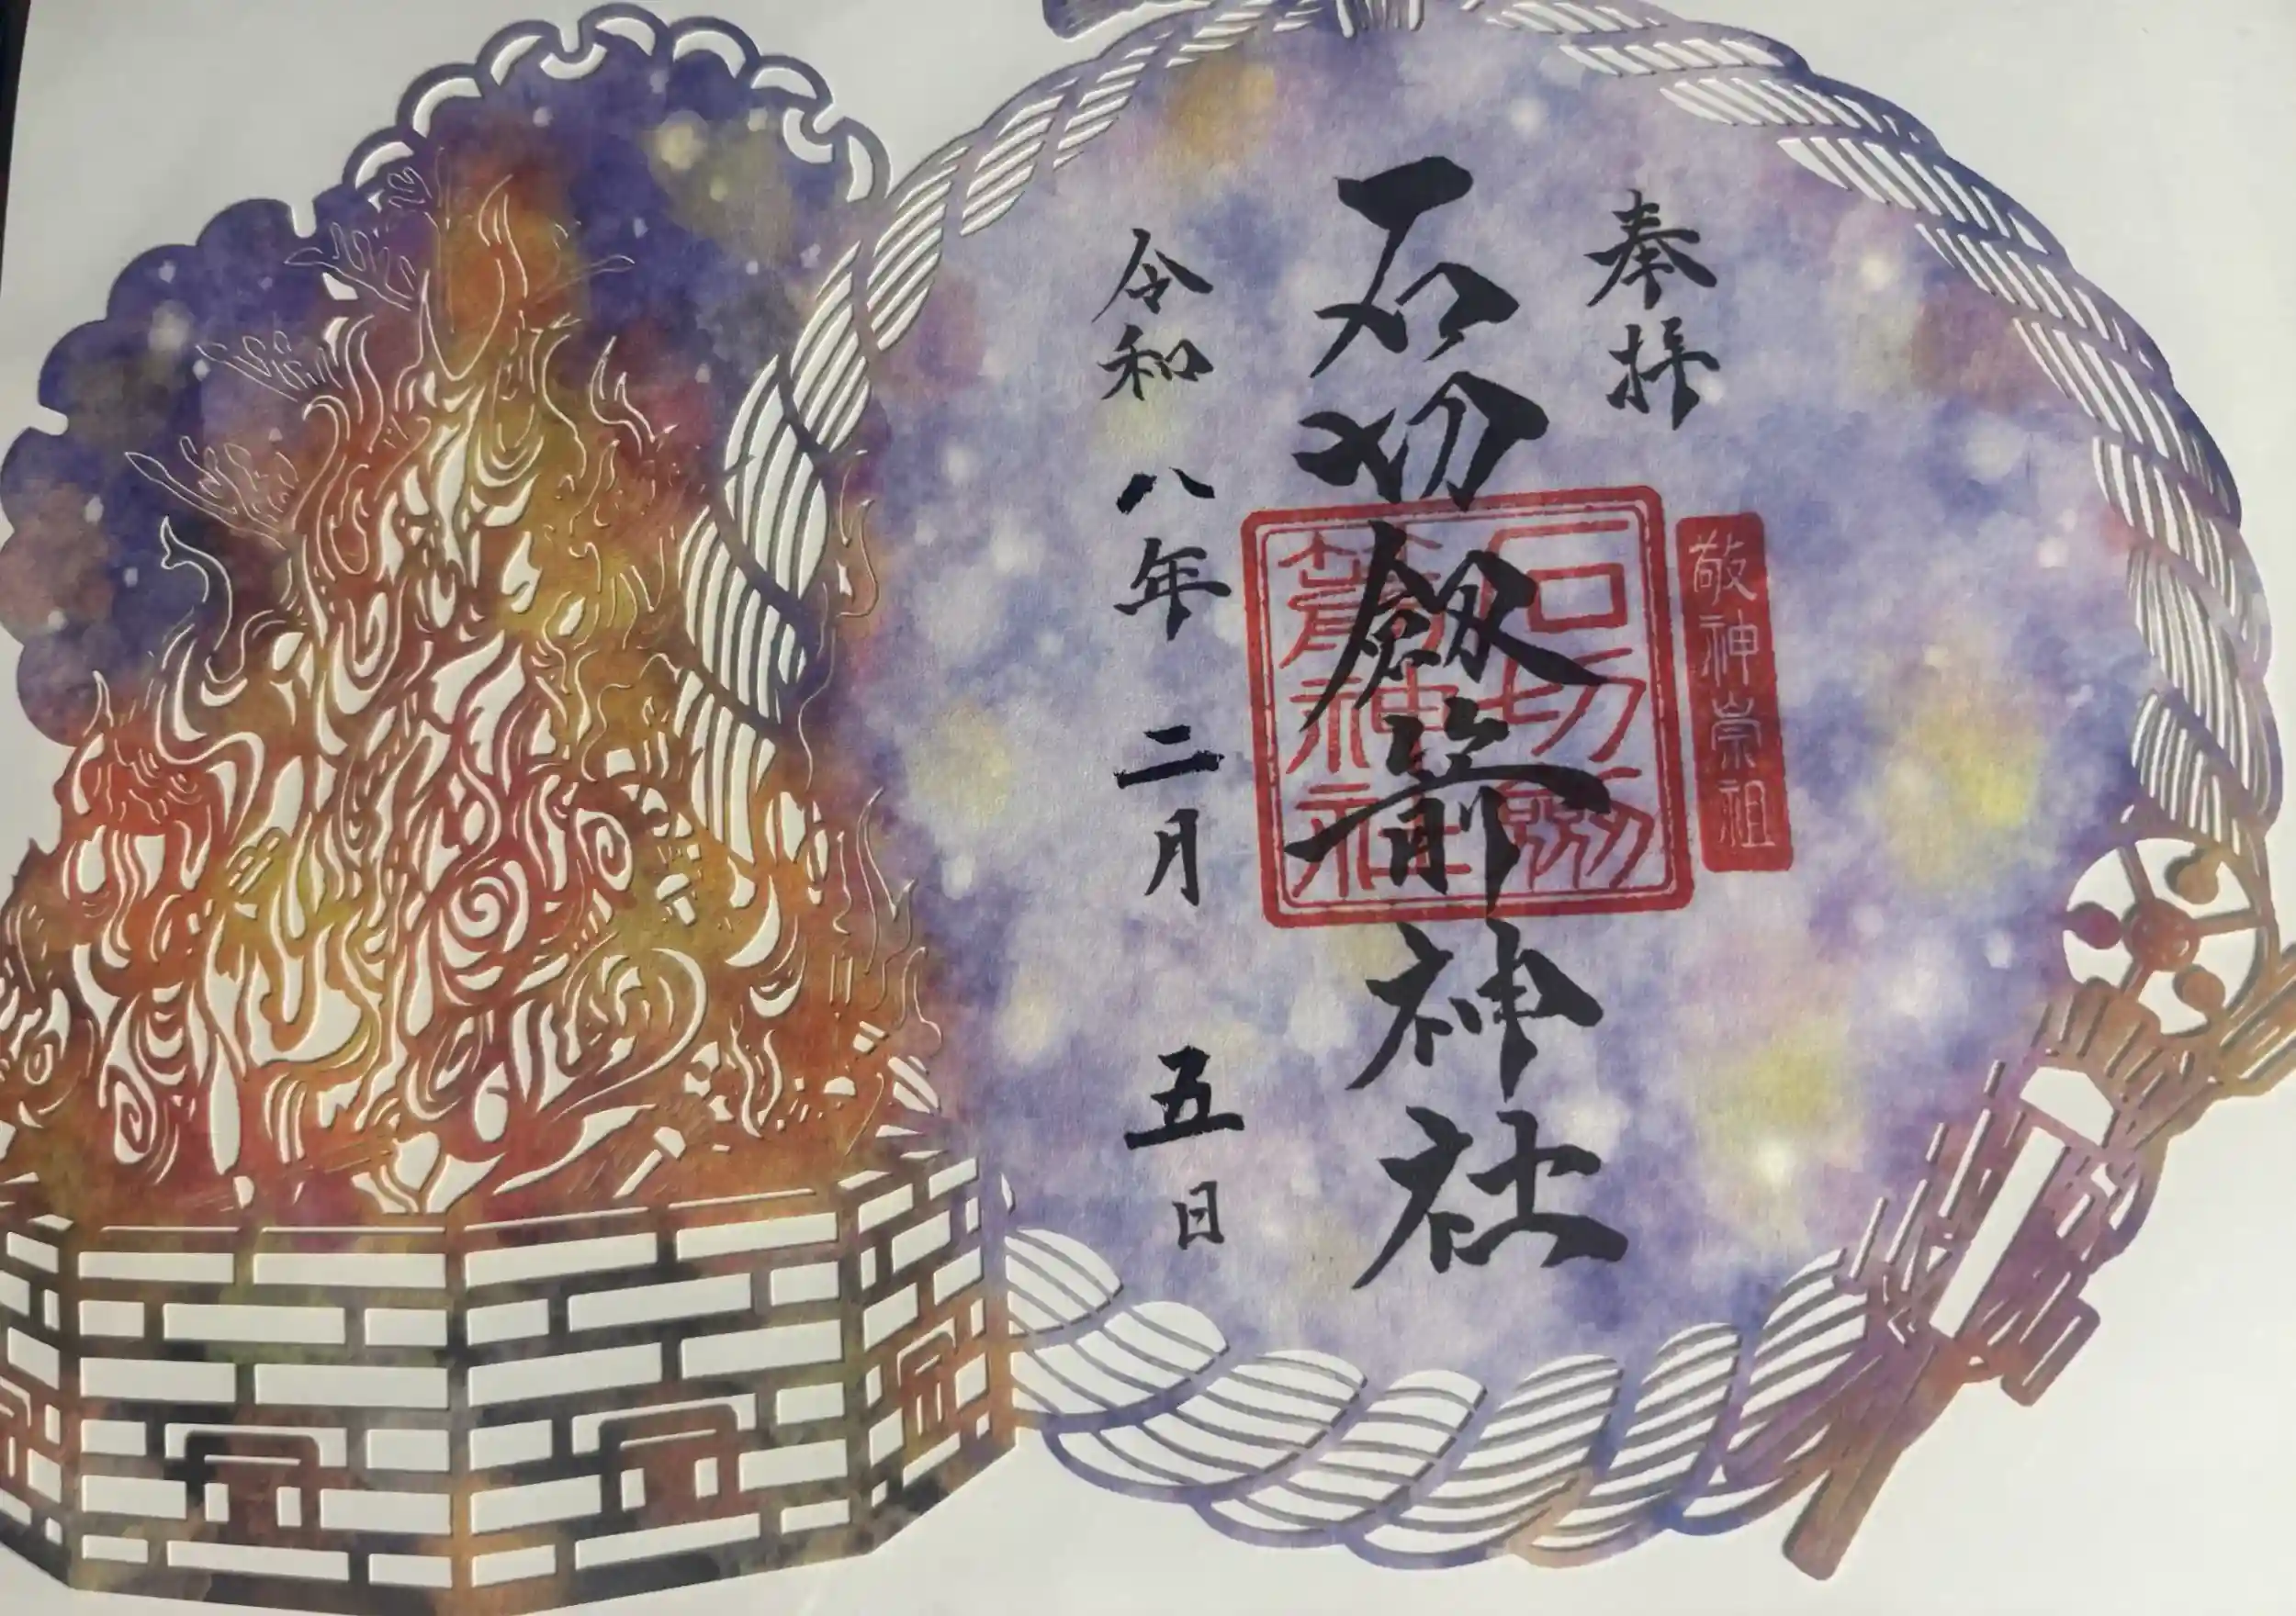 奉拝
敬神崇祖
石切劔箭神社
石切劔
箭神社
令和八年二月五日